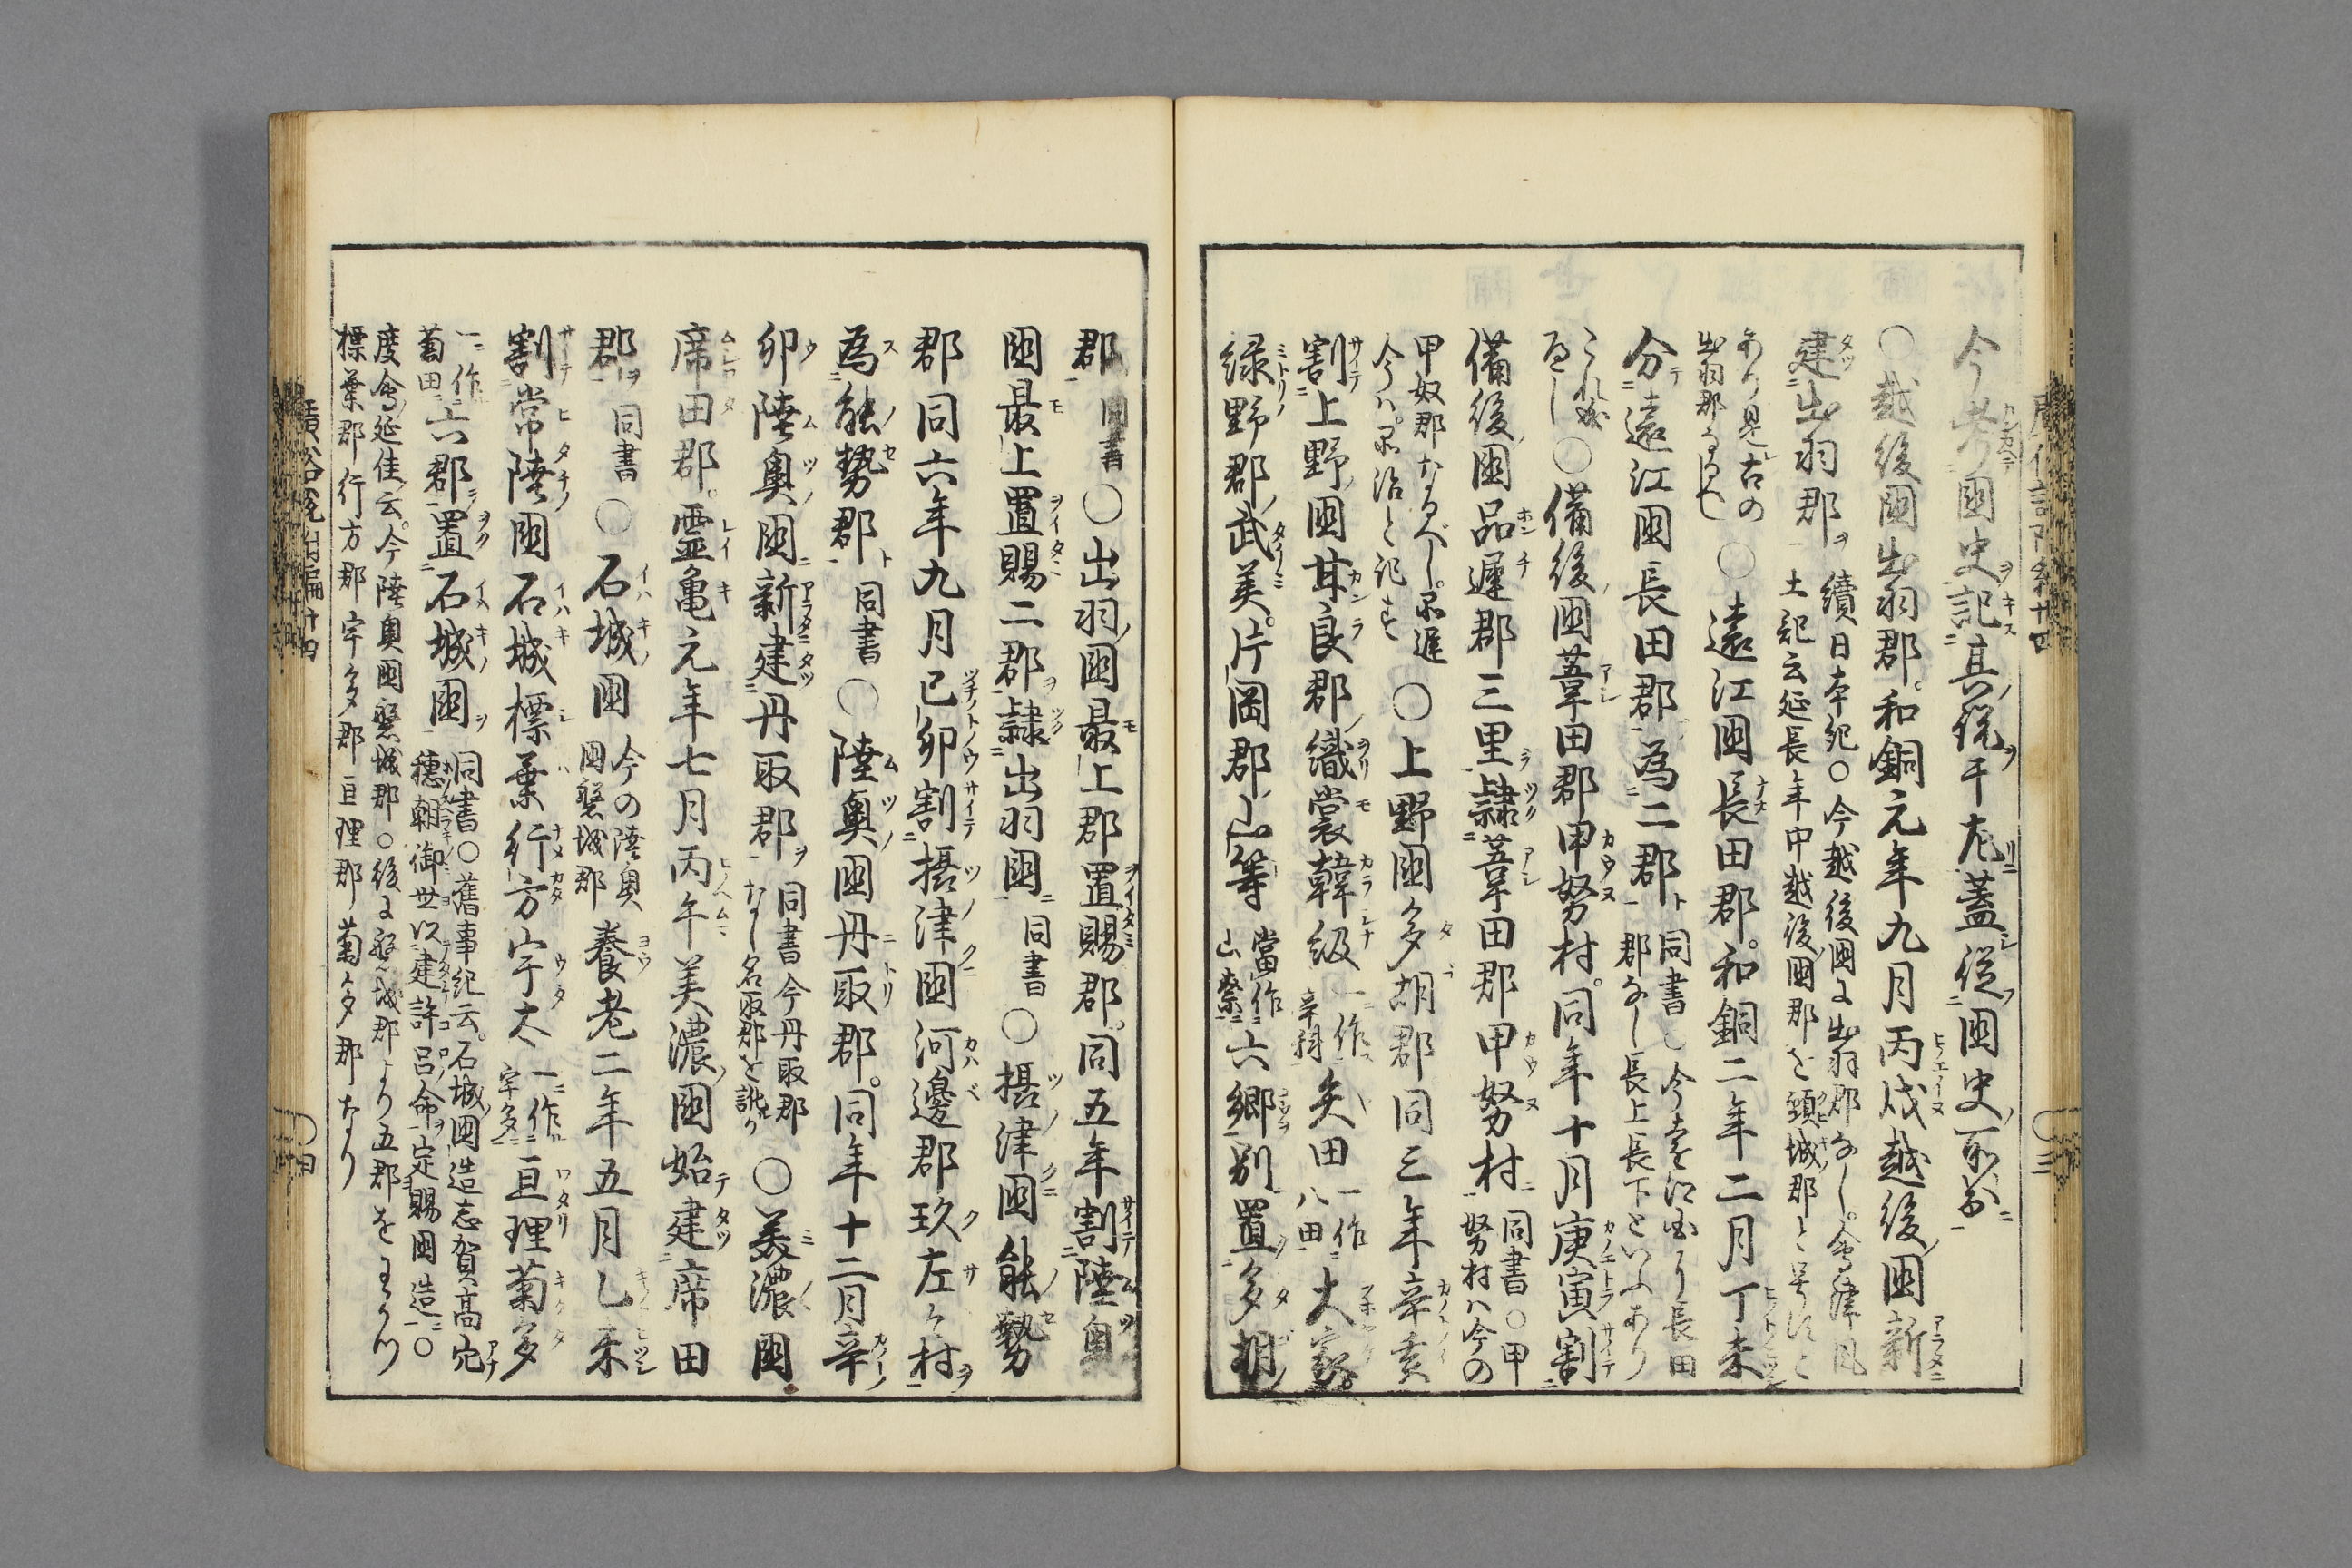 今考國史記其説于左蓋從國史而前
〇越後國出羽郡和銅元年九月丙戌越後國新
建出羽郡 續日本紀〇今越後國に出羽郡なし會津風
土記云延長年中越後國郡を頸城郡と
あり是古の
出羽郡なるべし
〇遠江國長田郡和銅二年二月丁未
分遠江國長田郡為二郡 同書
今遠江國に長田
郡なし長上長下といふあり
これ歟
〇備後國葦田郡甲努村同年十月庚寅割
備後國品遲郡三里隷葦田郡甲努村 同書〇甲
努村ハ今の
甲奴郡なるべし品遲
今ハ品治と記す
〇上野國多胡郡同三年辛亥
割上野國甘良郡織裳韓級 一作
辛科
矢田 一作
八田
大家
緑野郡武美片岡郡山等 當作
山奈
六郷別置多胡
郡 同書
〇出羽國最上郡置賜郡同五年割陸奥
國最上置賜二郡隷出羽國 同書
〇摂津國能勢
郡同六年九月己卯割摂津國河邊郡玖左々村
為能勢郡 同書
〇陸奥國丹取郡同年十二月辛
卯陸奥國新建丹取郡 同書今丹取郡
なし名取郡を訛か
〇美濃國
席田郡霊亀元年七月丙午美濃國始建席田
郡 同書
〇石城國 今の陸奥
國磐城郡
養老二年五月乙未
割常陸國石城標葉行方宇太 一作
宇多
亘理菊多
一作
菊田
六郡置石城國 同書〇舊事紀云石城國造志賀高穴
穂朝御世以建許呂命定賜國造〇
度會延佳云今陸奥國磐城郡〇後に磐城郡より五郡をわかつ
標葉郡行方郡宇多郡亘理郡菊多郡なり